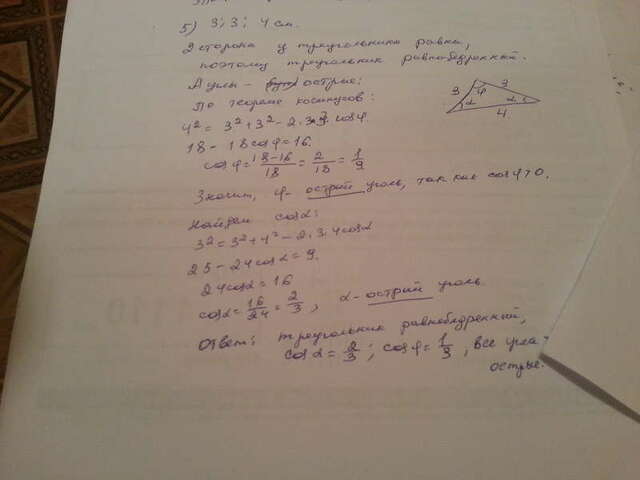 5) 3; 3; 4 см.
2 стороны у треугольника равны,
поэтому треугольник равнобедренный.
А углы - острые:
По теореме косинусов:
4² = 3² + 3² - 2·3·3·cosφ.
18 - 18cosφ = 16.
cosφ = 18-16/18 = 2/18 = 1/9
Значит, φ - острый угол, так как cosφ>0.
Найдем cosα:
3² = 3² + 4² - 2·3·4cosα
25 - 24cosα = 9.
24cosα = 16
cosα = 16/24 = 2/3; α - острый угол.
Ответ: треугольник равнобедренный,
cosα = 2/3; cosφ = 1/9, все углы
острые.
3
φ
3
α
α
4